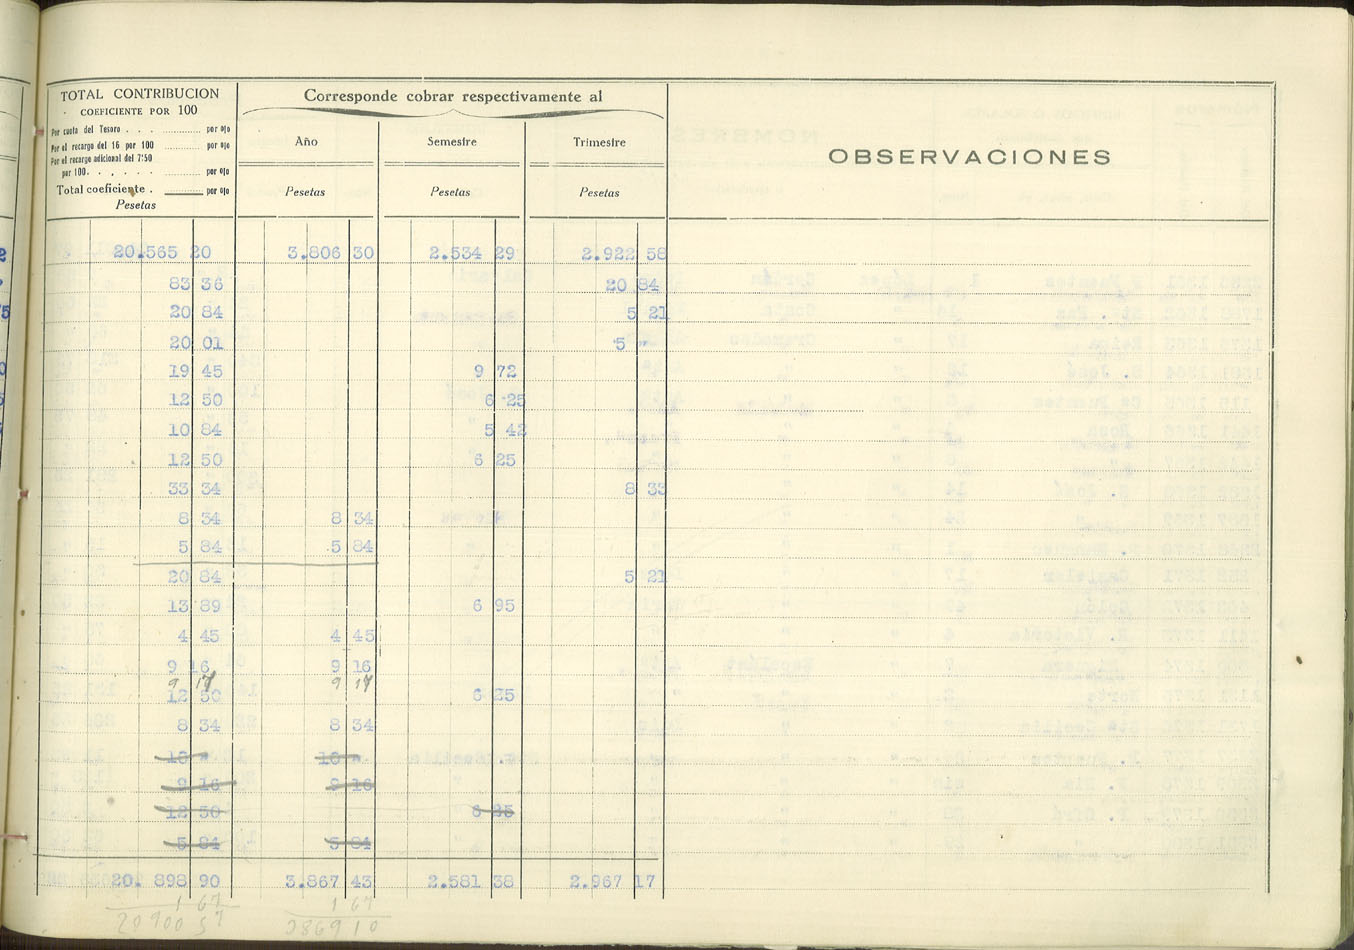 TOTAL CONTRIBUCION
COEFICIENTE POR 100
Por cuota del Tesoro . . . ............ por o|o
Por el recargo del 16 por 100 ............ por o|o
Por el recargo adicional del 7:50
por 100. . . . . . ............ por o|o
Total coeficiente . ............ por o|o
Pesetas
Corresponde cobrar respectivamente al
Año Semestre Trimestre
Pesetas Pesetas Pesetas
OBSERVACIONES
20.565 20 3.806 30 2.534 29 2.922 58
83 36 20 84
20 84 5 21
20 01 5 "
19 45 9 72
12 50 6 25
10 84 5 42
12 50 6 25
33 34 8 33
8 34 8 34
5 84 5 84
20 84 5 21
13 89 6 95
4 45 4 45
9 16 9 16
9 17 9 17
12 50 6 25
8 34 8 34
10 " 10 "
9 16 9 16
12 50 6 25
5 84 5 84
20. 898 90 3.867 43 2.581 38 2.967 17
1 67 1 67
20900 57 3869 10